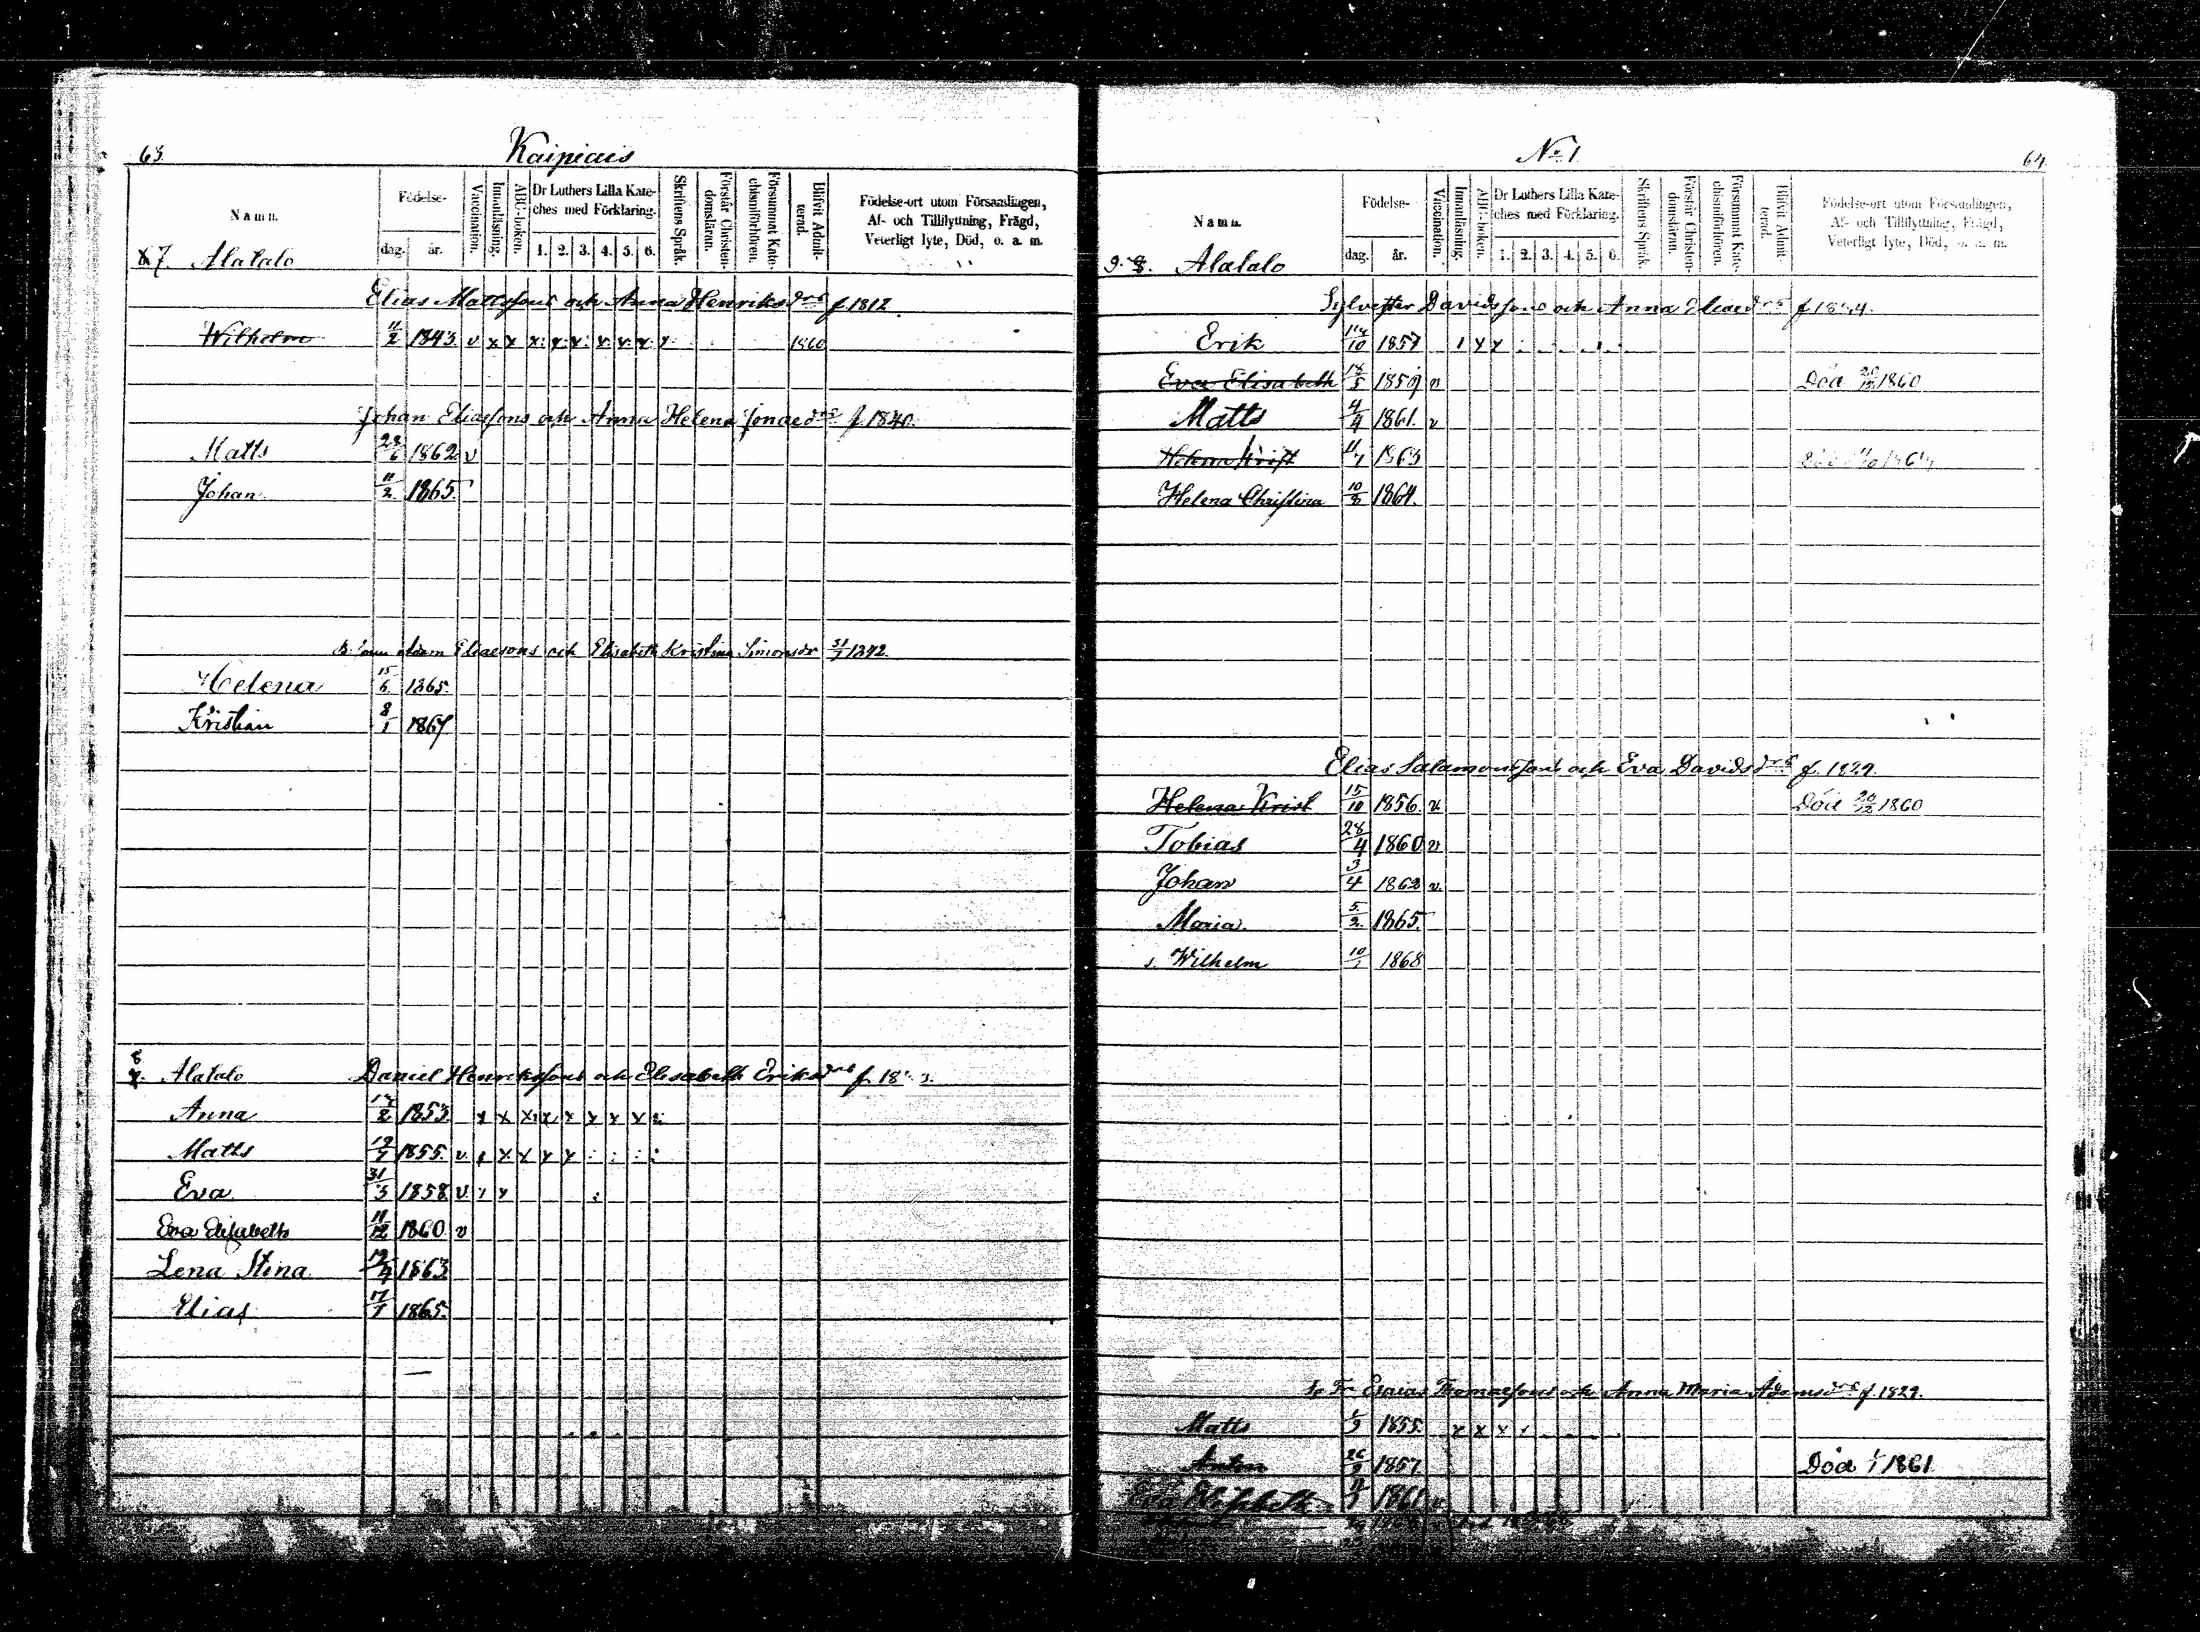 63.
Kaipiais
Namn.
Födelse-
dag.
år.
Vaccination.
Innanläsning.
ABC-boken.
Dr Luthers Lilla Kate-
ches med Förklaring.
1. 2. 3. 4. 5. 6.
Skriftens Språk.
Förstår Christen-
domsläran.
Försummat Kate-
chismiförhören.
Blifvit Admit-
terad.
Födelse-ort utom Församlingen,
Af- och Tillflyttning, Frägd,
Veterligt lyte, Död, o. a. m.
7. Alatalo
Elias Mattssons och Anna Henriksdrs f 1812
Wilhelm 11/2 1843. v x x x x x x x x x 1860
Johan Eliassons och Anna Helena Jonaedrs f. 1840.
Matts 1862 v
Johan 11/2 1865.
Adam Eliaesons och Elisabeth Kristina Simonsdr 1842.
Helena 15/6 1865.
Kristian 8/1 1867
8 Alatalo Daniel Henrikssons och Elisabeth Eriksdrs f.
Anna 1853. x x x x x x x x
Matts 1855. v x x x x
Eva 31/3 1858 v x x
Eva Elisabeth 11/12 1860 v
Lena Stina 12/4 1863
Elias 17/1 1865.
No 1.
64.
Namn.
Födelse-
dag.
år.
Vaccination.
Innanläsning.
ABC-boken.
Dr Luthers Lilla Kate-
ches med Förklaring.
1. 2. 3. 4. 5. 6.
Skriftens Språk.
Förstår Christen-
domsläran.
Försummat Kate-
chismiförhören.
Blifvit Admit-
terad.
Födelse-ort utom Församlingen,
Af- och Tillflyttning, Frägd,
Veterligt lyte, Död, o. a. m.
9. 8. Alatalo
Sylvester Davidssons och Anna Eliaedrs
Erik 1857 x x
Eva Elisabeth 18/5 1859 v Död 1860
Matts 4/4 1861. v
Helena Krist 1863
Helena Christina 10/8 1864.
Elias Salamonssons och Eva Davidsdrs f. 1829.
Helena Krist 15/10 1856. v Död 20/12 1860
Tobias 28/4 1860 v
Johan 3/4 1862 v.
Maria. 5/2 1865
s. Wilhelm 1868
Esaias Thomassons och Anna Maria Adamsdrs f. 1829.
Matts 1855. x x x
Anton 1857 Död 1/1 1861
Eva Elisabeth 1861 v